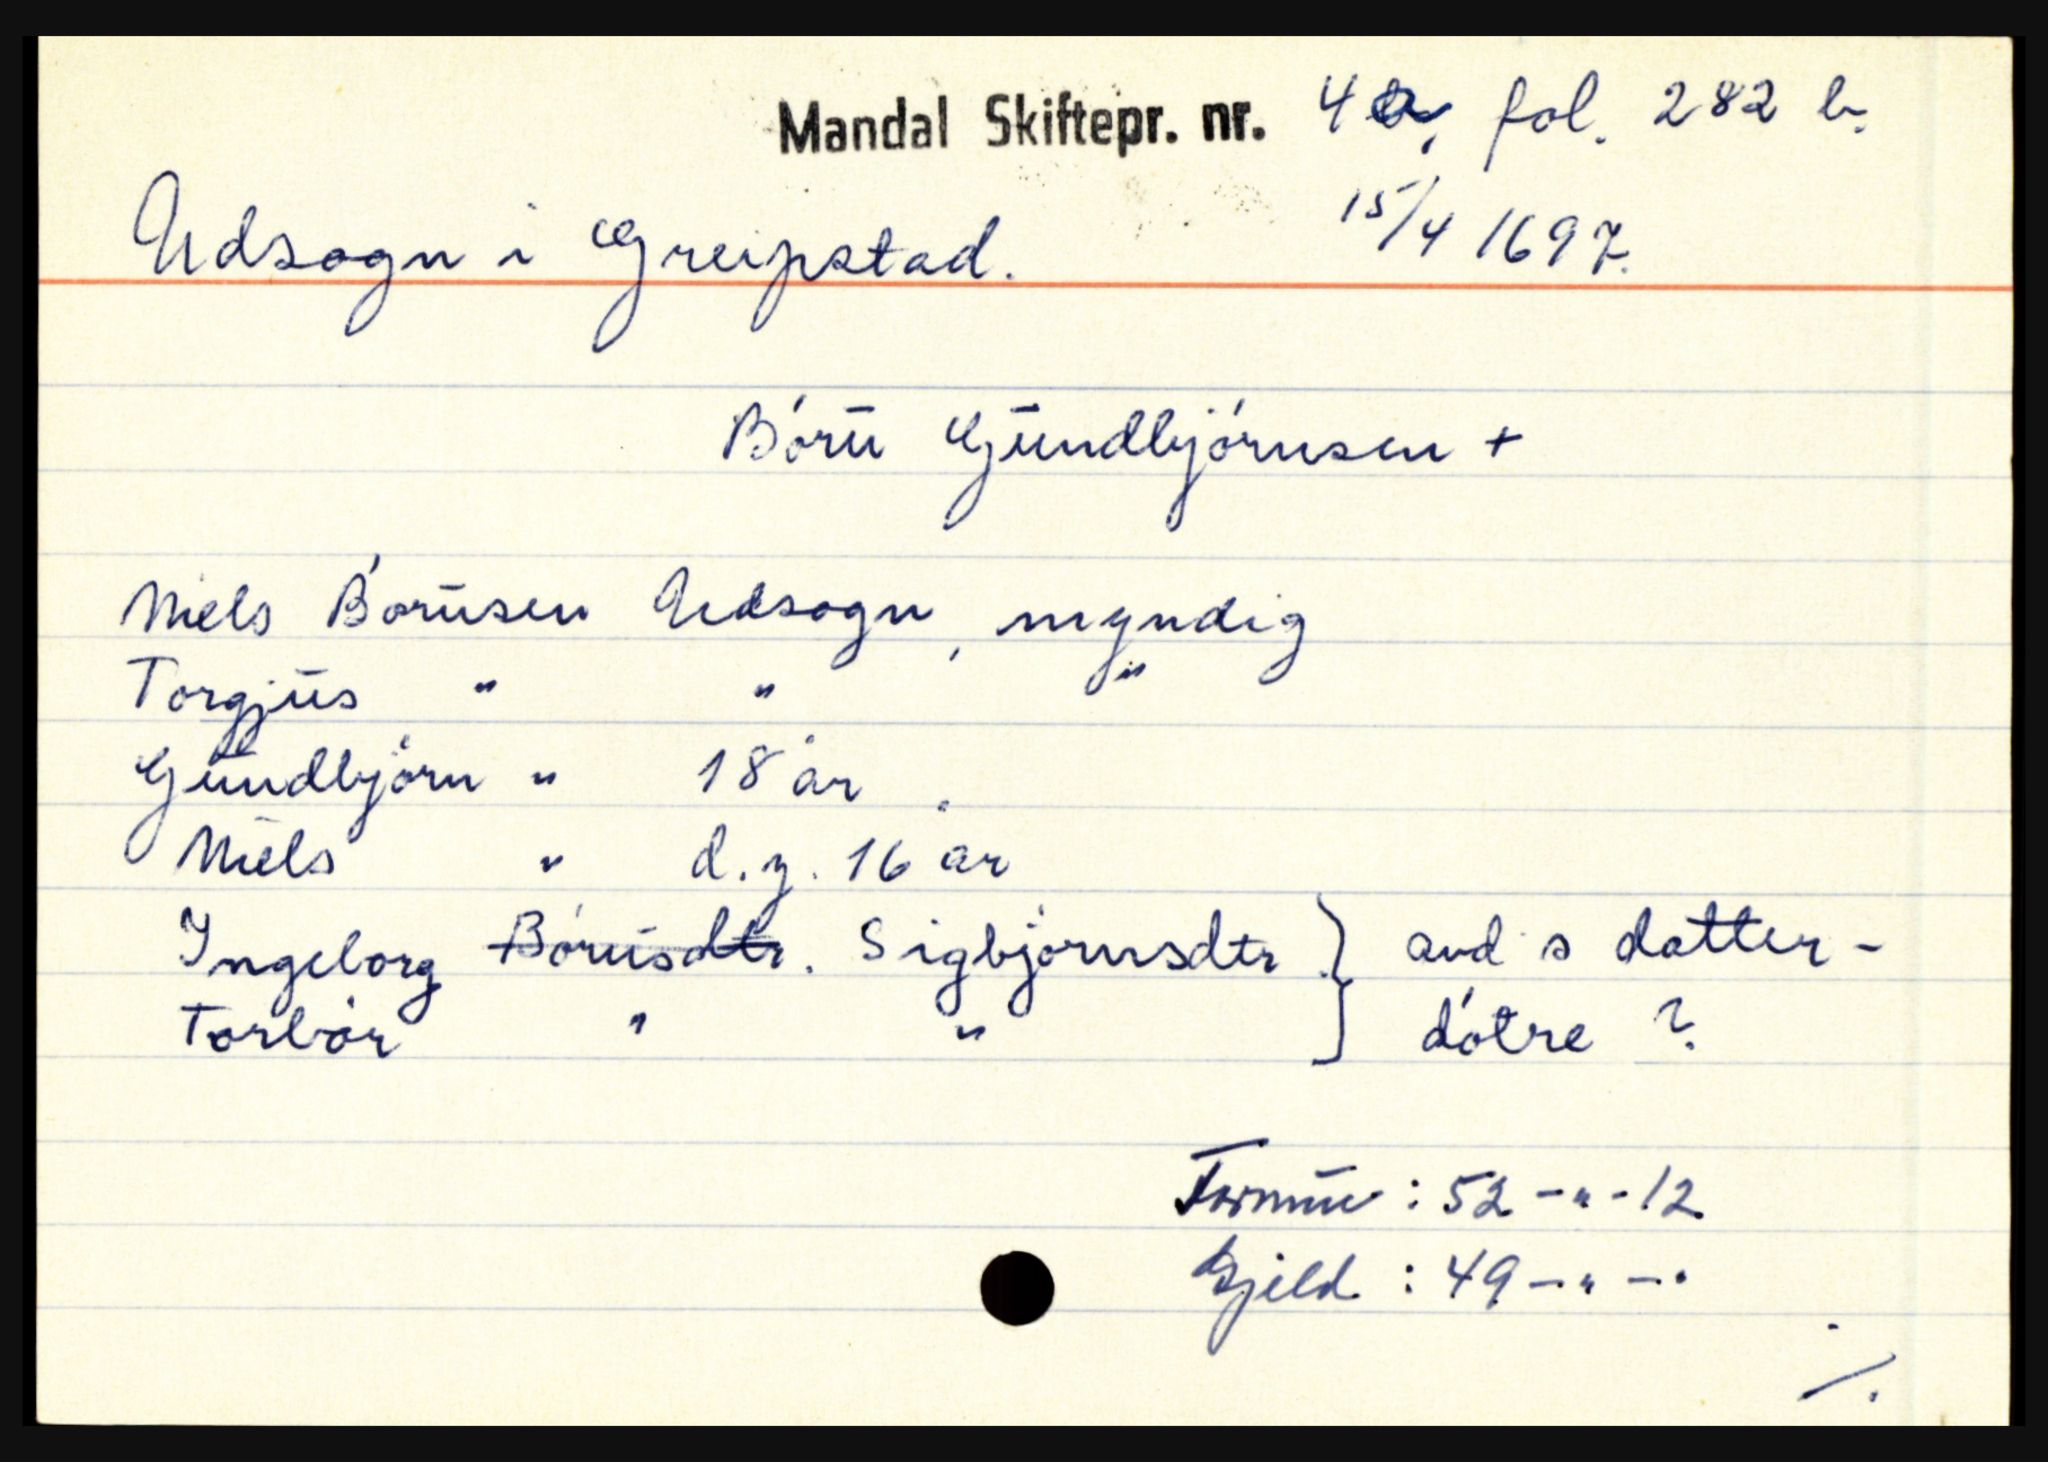 Mandal Skiftepr. nr. 4a, fol. 282 b.
Udsogn i Greipstad. 15/4 1697.
Børu Gundbjørnsen +
Niels Børusen Udsogn, myndig
Torgjus " " "
Gundbjørn " 18 år.
Niels " d.y. 16 år
Ingeborg Børusdtr. Sigbjørnsdtr } avd s datter-
Torbor " " } døtre ?
Formue : 52 - " - 12
Gjeld : 49 - " - "
./.